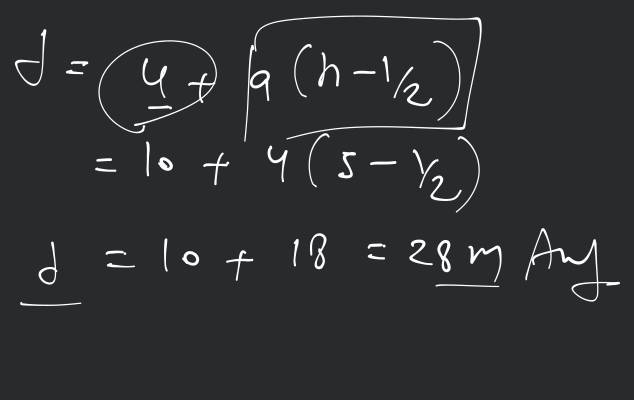 d = u + a (n - 1/2)
= 10 + 4 (5 - 1/2)
d = 10 + 18 = 28 m Ans